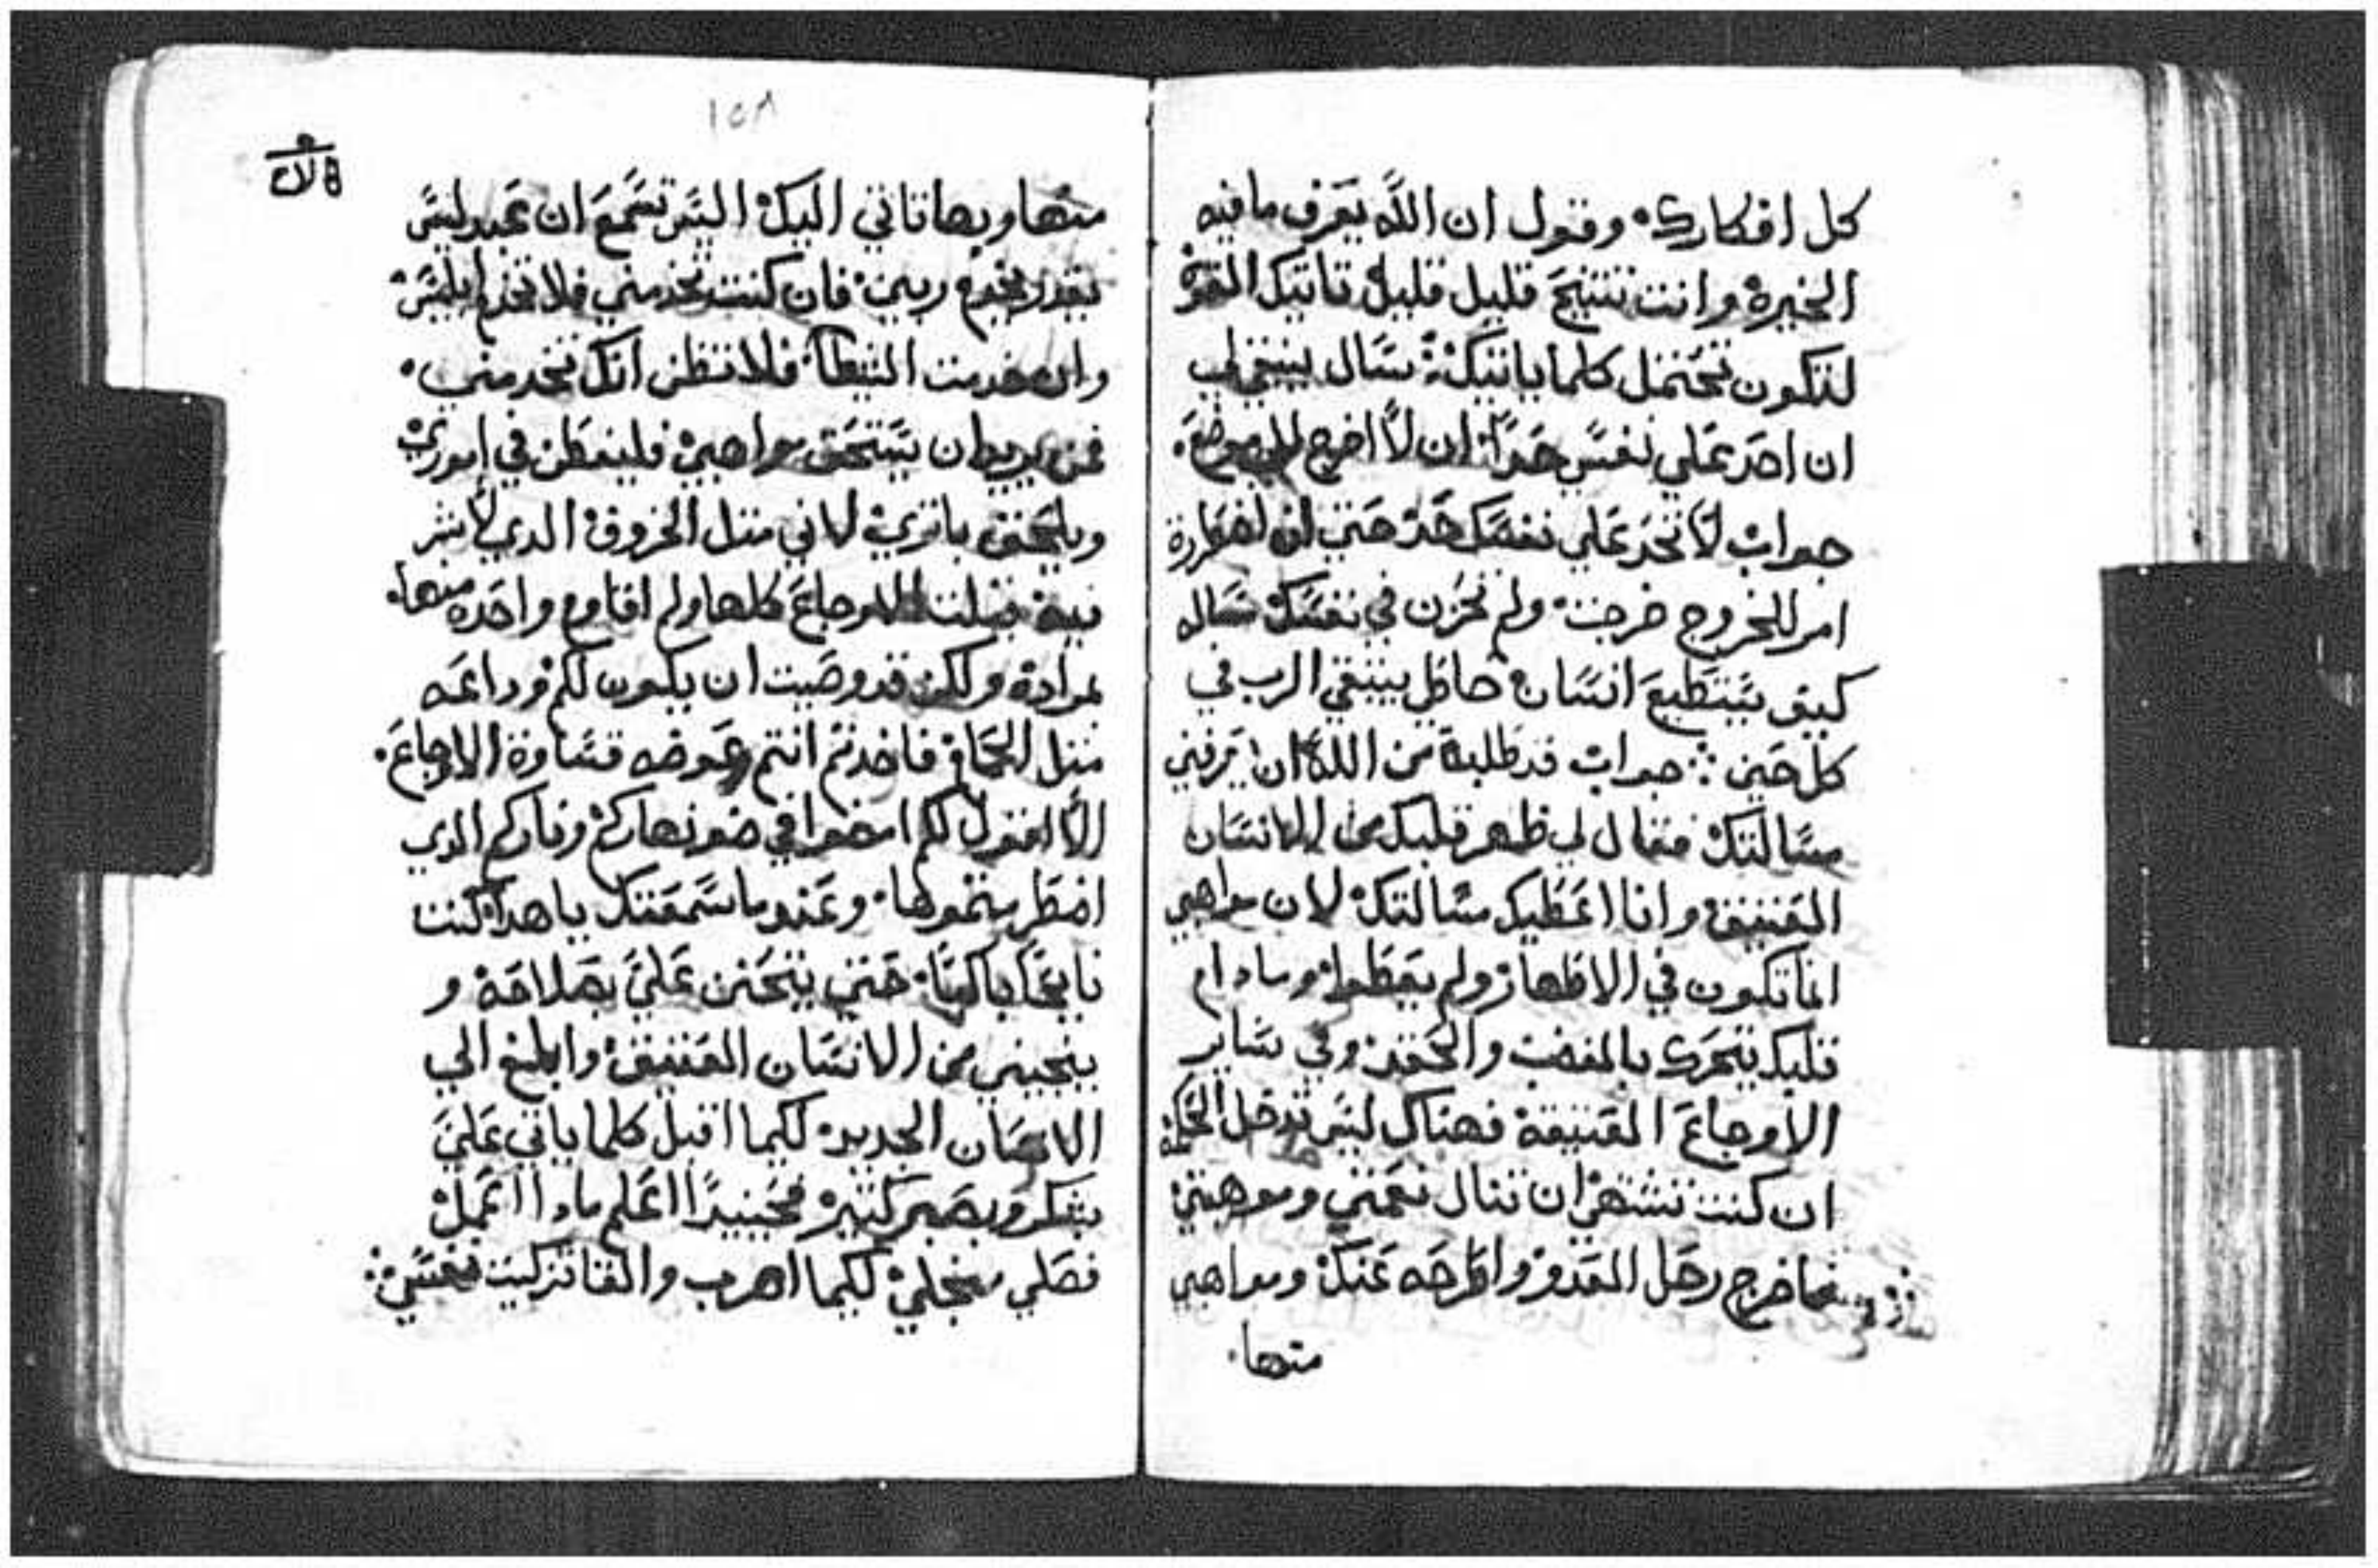 كل افكارك. وقول ان الله يعرف ما فيه
الخيرة وانت تتنيح قليل قليل فاتيك القوة
لتكون تحتمل كلما ياتيك سال ينبغي لي
ان احد علي نفسي حدا ان لا اخرج الي موضع.
جواب لا تحد علي نفسك حد حتي ان
امر للخروج خرجت ولم تحزن في نفسك سال
كيف يستطيع انسان خاطي يبتغي الرب في
كل حين جواب قد طلبة من الله ان يعرفني
مسالتك فقال لي طهر قلبك من الانسان
العتيق وانا اعطيك مسالتك لان مواهبي
انما تكون في الاطهار ولهم يعطوا وما دام
قلبك يتحرك بالغضب والحقد وفي ساير
الاوجاع العتيقة فهناك ليس تدخل الحكمة
ان كنت تشتهي ان تنال نعمتي وموهبتي
فاخرج رحل العدو واطرحه عنك ومواهبي
منها.
١٥٨
منها وبها تاتي اليك اليس تسمع ان عبد ليس
يقدر يخدم ربين فان كنت تخدمني فلا تخدم ابليس
وان خدمت الشيطان فلا تظن انك تخدمني.
فمن يريد ان يستحق مواهبي فليفطن في اموري
ويلتحق باثري لاني مثل الخروف الدي لا شر
فيه قبلت الاوجاع كلها ولم اقاوم واحده منها.
بمرادة ولكن قد وصيت ان يكون لكم وداعه
مثل الحمام فاخدتم انتم عوضه قساوة الاوجاع.
الا اقول لكم امضوا في ضو نهاركم وناركم الدي
اضطرمتموها. وعندما سمعتك يا هدا كنت
نايحا باكيا حتي يتحنن علي بصلاحه و
ينجيني من الانسان العتيق وابلغ الي
الانسان الجديد لكيما اقبل كلما ياتي علي
بشكر وبصبر كتير فحينيدا اعلم مادا اعمل
فصلي منجلي لكيما اهرب والقا تزكيت نفسي